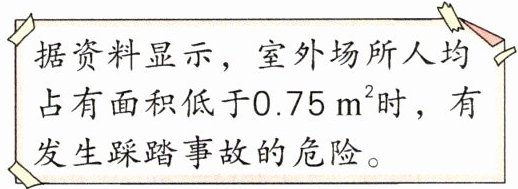 据资料显示，室外场所人均
占有面积低于0.75 m²时，有
发生踩踏事故的危险。